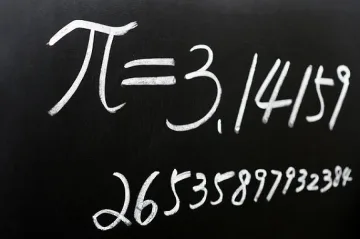 π=3.14159
26535897932384